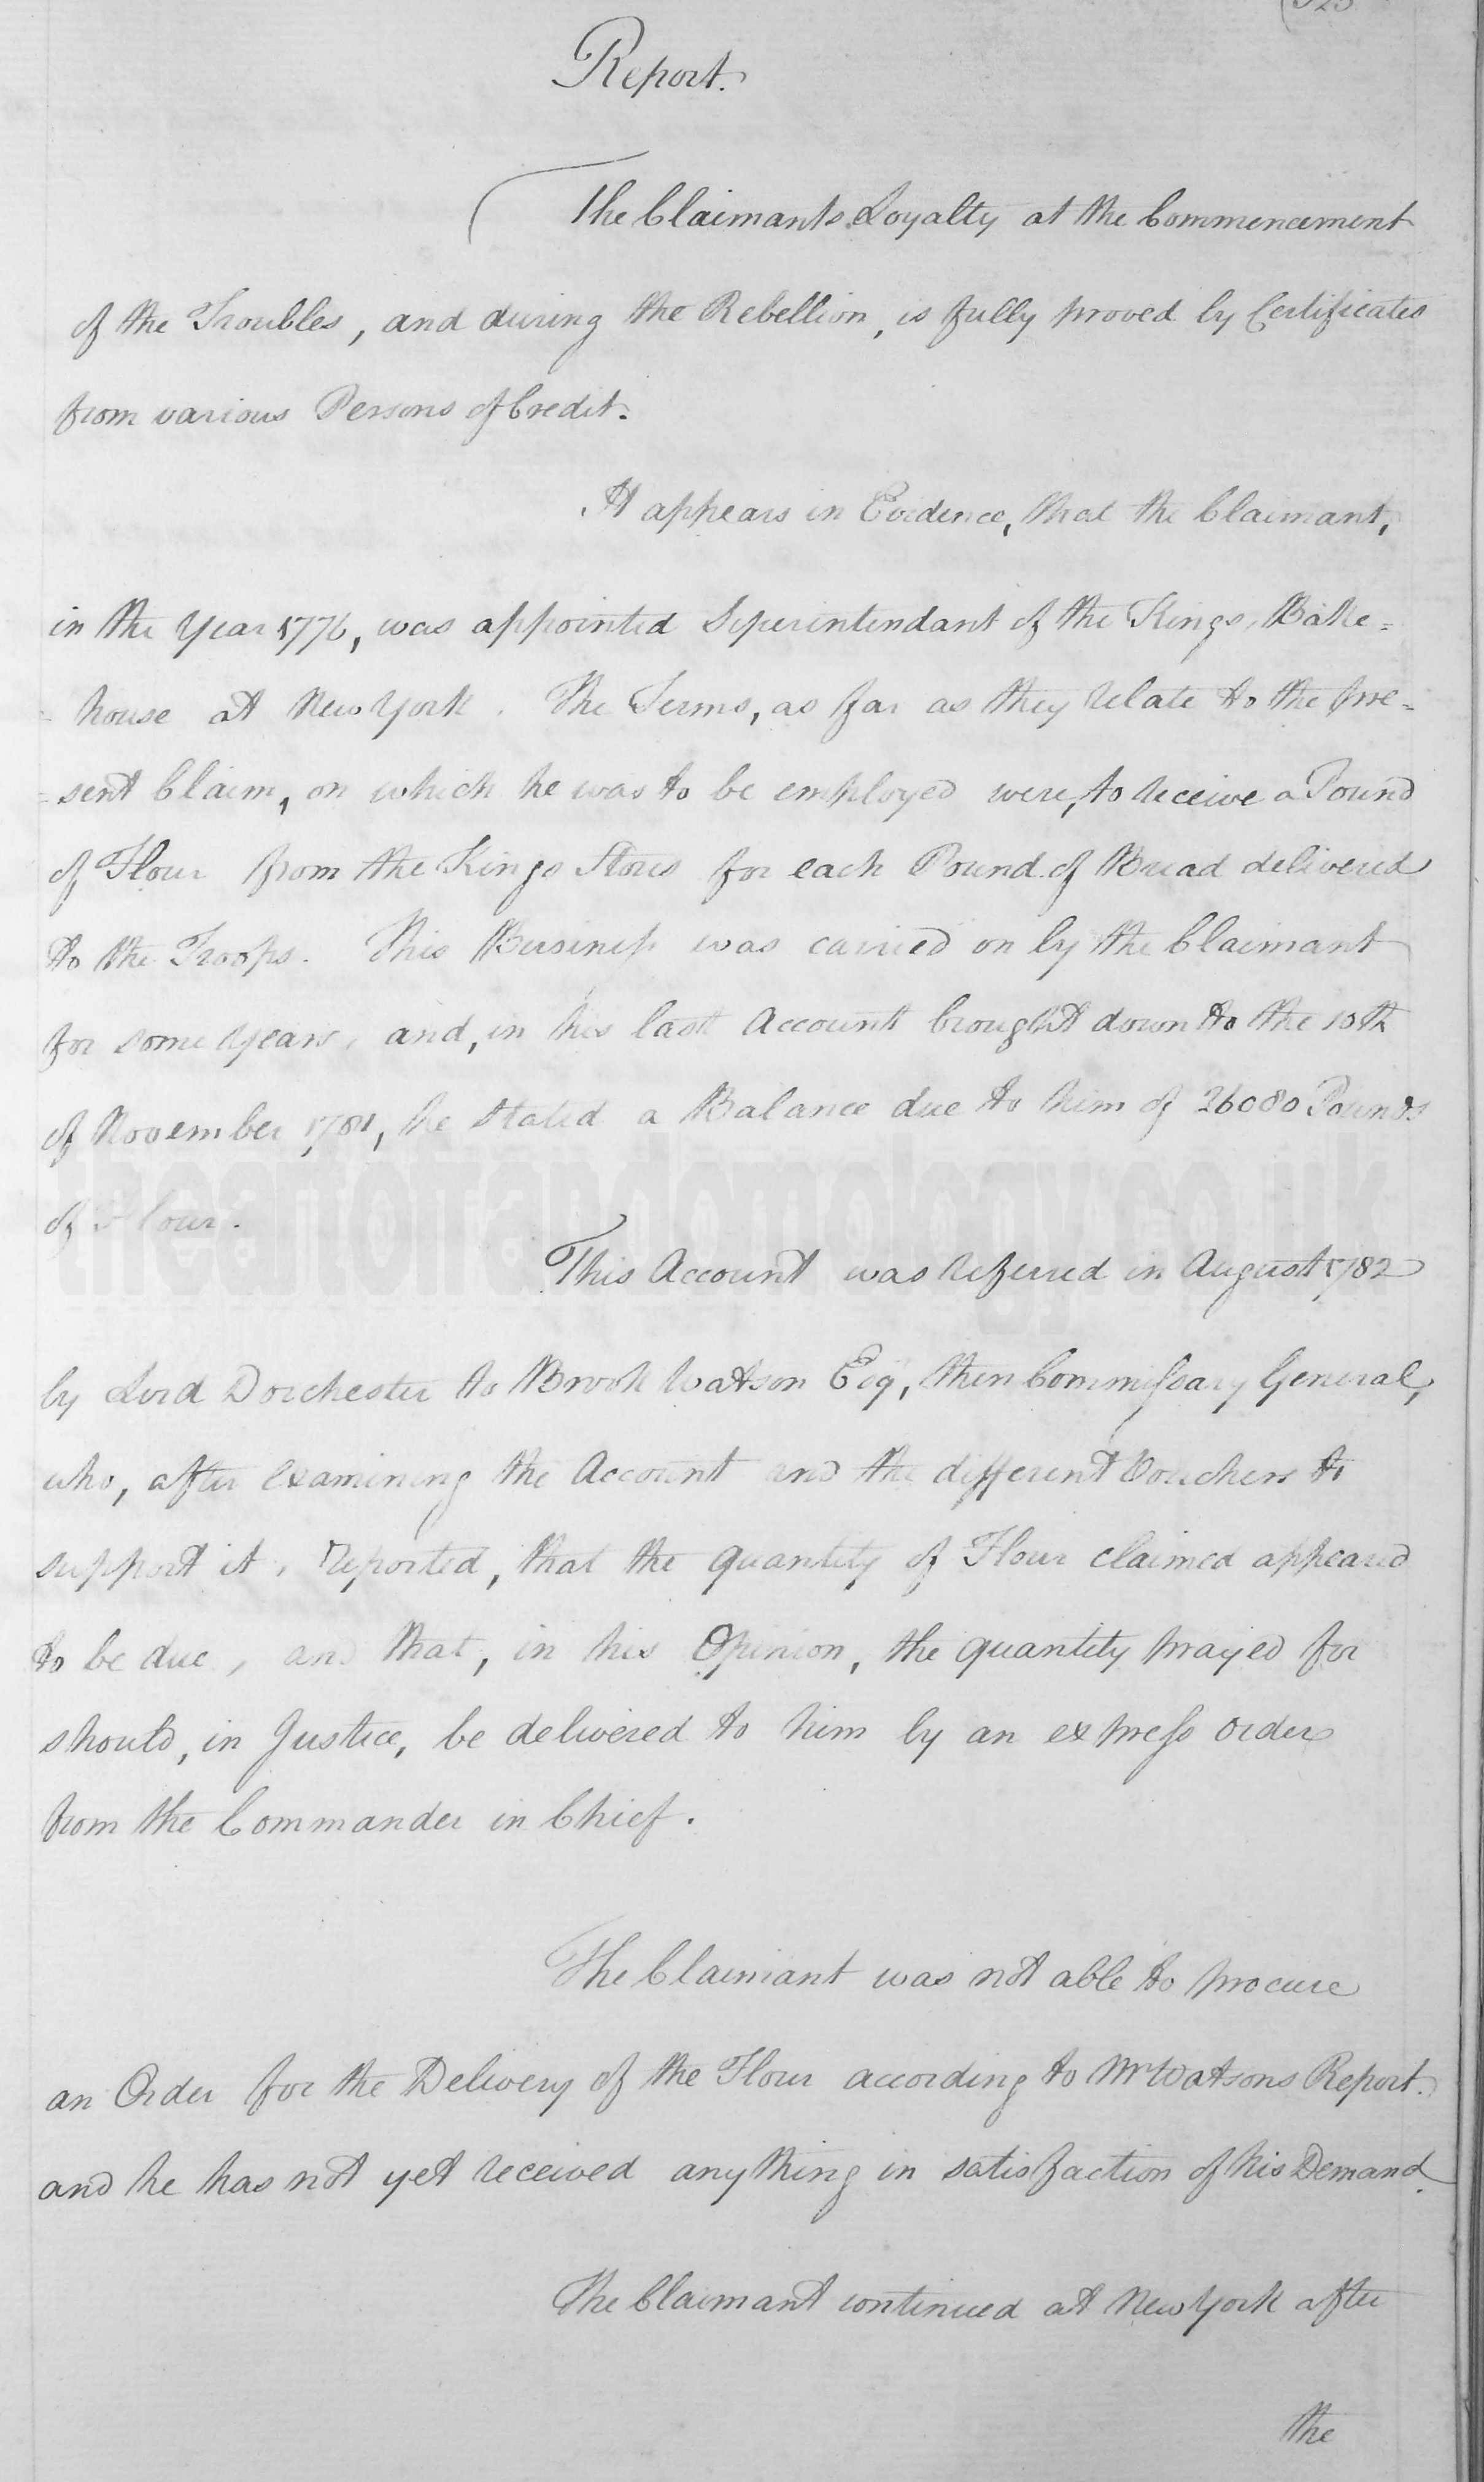 Report.
The Claimants Loyalty at the Commencement
of the Troubles, and during the Rebellion, is fully proved by Certificates
from various Persons of Credit.
It appears in Evidence, that the Claimant,
in the Year 1776, was appointed Superintendant of the Kings Bake=
=house at New York. The Terms, as far as they relate to the pre=
=sent Claim, on which he was to be employed were, to receive a Pound
of Flour from the Kings Stores for each Pound of Bread delivered
to the Troops. This Business was carried on by the Claimant
for some Years, and, in his last Account brought down to the 10th
of November 1781, he stated a Balance due to him of 26080 Pounds
of Flour.
theartoftandomology.co.uk
This Account was referred in August 1782
by Lord Dorchester to Brook Watson Esq, then Commissary General,
who, after examining the Account and the different Vouchers to
support it, reported, that the quantity of Flour claimed appeared
to be due, and that, in his Opinion, the quantity prayed for
should, in Justice, be delivered to him by an express order
from the Commander in Chief.
The Claimant was not able to procure
an Order for the Delivery of the Flour according to Mr Watsons Report.
and he has not yet received any thing in satisfaction of his Demand.
The Claimant continued at New York after
the